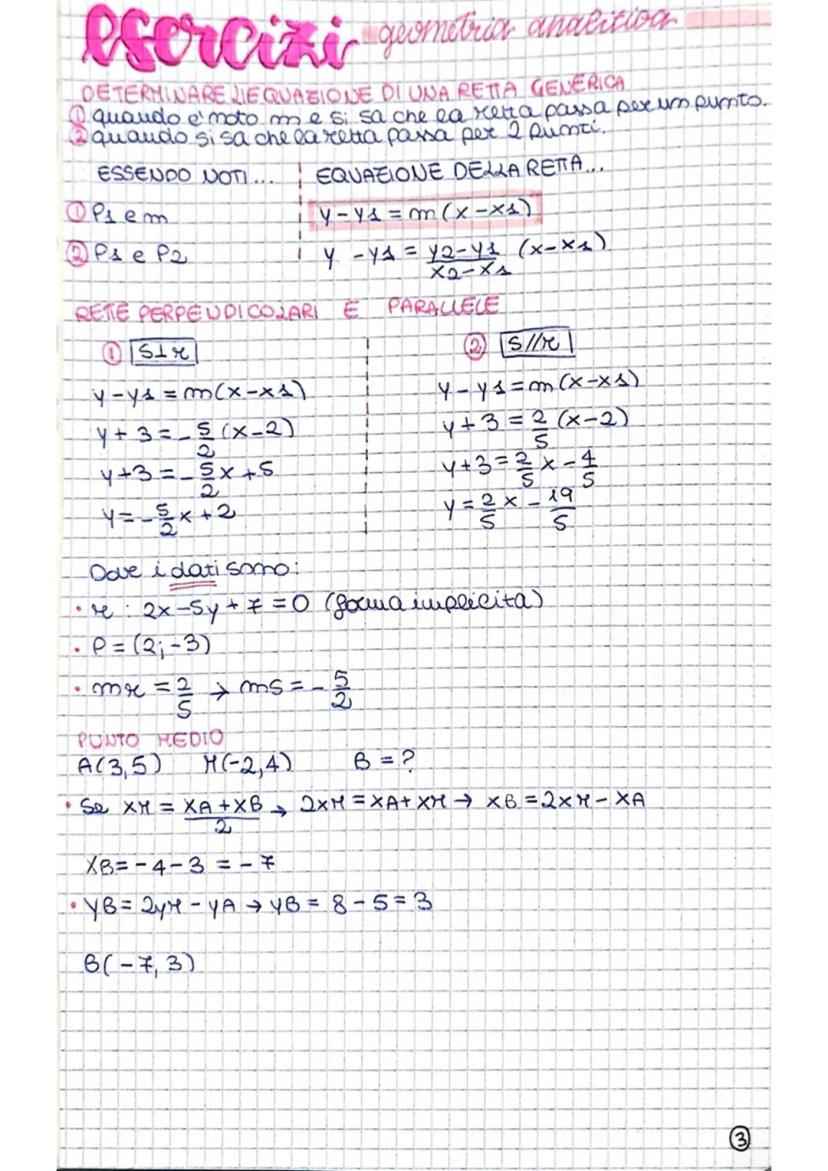 esercizi geometria analitica
DETERMINARE L'EQUAZIONE DI UNA RETTA GENERICA
① quando e' noto m e si sa che la retta passa per un punto.
② quando si sa che la retta passa per 2 punti.
ESSENDO NOTI... EQUAZIONE DELLA RETTA...
① P1 e m y-y1 = m(x-x1)
② P1 e P2 y-y1 = y2-y1/x2-x1 (x-x1)
RETTE PERPENDICOLARI E PARALLELE
① S⊥r ② S//r
y-y1 = m(x-x1) y-y1 = m(x-x1)
y+3 = -5/2 (x-2) y+3 = 2/5 (x-2)
y+3 = -5/2 x+5 y+3 = 2/5 x - 4/5
y = -5/2 x+2 y = 2/5 x - 19/5
Dove i dati sono:
• r: 2x-5y+7=0 (forma implicita)
• P = (2;-3)
• mr = 2/5 → ms = -5/2
PUNTO MEDIO
A(3,5) M(-2,4) B = ?
• Se xM = xA+xB/2 → 2xM = xA+xM → xB = 2xM - xA
xB = -4-3 = -7
• yB = 2yM - yA → yB = 8-5 = 3
B(-7,3)
③